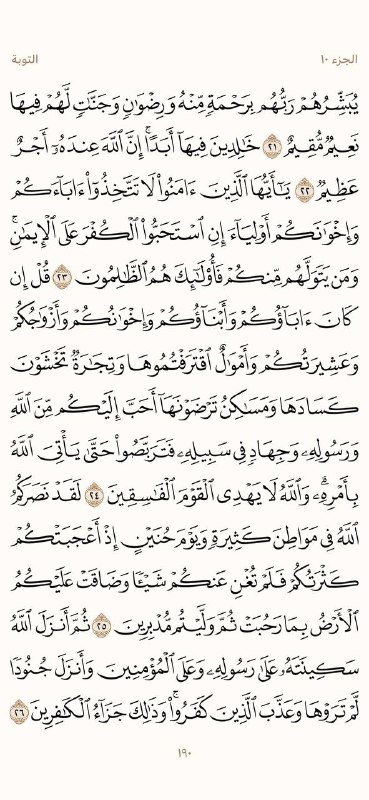 الجزء ١٠ التوبة
يُبَشِّرُهُمْ رَبُّهُم بِرَحْمَةٍ مِّنْهُ وَرِضْوَٰنٍ وَجَنَّٰتٍ لَّهُمْ فِيهَا
نَعِيمٌ مُّقِيمٌ ٢١ خَٰلِدِينَ فِيهَآ أَبَدًا ۚ إِنَّ ٱللَّهَ عِندَهُۥٓ أَجْرٌ
عَظِيمٌ ٢٢ يَٰٓأَيُّهَا ٱلَّذِينَ ءَامَنُوا۟ لَا تَتَّخِذُوٓا۟ ءَابَآءَكُمْ
وَإِخْوَٰنَكُمْ أَوْلِيَآءَ إِنِ ٱسْتَحَبُّوا۟ ٱلْكُفْرَ عَلَى ٱلْإِيمَٰنِ ۚ
وَمَن يَتَوَلَّهُم مِّنكُمْ فَأُو۟لَٰٓئِكَ هُمُ ٱلظَّٰلِمُونَ ٢٣ قُلْ إِن
كَانَ ءَابَآؤُكُمْ وَأَبْنَآؤُكُمْ وَإِخْوَٰنُكُمْ وَأَزْوَٰجُكُمْ
وَعَشِيرَتُكُمْ وَأَمْوَٰلٌ ٱقْتَرَفْتُمُوهَا وَتِجَٰرَةٌ تَخْشَوْنَ
كَسَادَهَا وَمَسَٰكِنُ تَرْضَوْنَهَآ أَحَبَّ إِلَيْكُم مِّنَ ٱللَّهِ
وَرَسُولِهِۦ وَجِهَادٍ فِى سَبِيلِهِۦ فَتَرَبَّصُوا۟ حَتَّىٰ يَأْتِىَ ٱللَّهُ
بِأَمْرِهِۦ ۗ وَٱللَّهُ لَا يَهْدِى ٱلْقَوْمَ ٱلْفَٰسِقِينَ ٢٤ لَقَدْ نَصَرَكُمُ
ٱللَّهُ فِى مَوَاطِنَ كَثِيرَةٍ ۙ وَيَوْمَ حُنَيْنٍ ۙ إِذْ أَعْجَبَتْكُمْ
كَثْرَتُكُمْ فَلَمْ تُغْنِ عَنكُمْ شَيْـًٔا وَضَاقَتْ عَلَيْكُمُ
ٱلْأَرْضُ بِمَا رَحُبَتْ ثُمَّ وَلَّيْتُم مُّدْبِرِينَ ٢٥ ثُمَّ أَنزَلَ ٱللَّهُ
سَكِينَتَهُۥ عَلَىٰ رَسُولِهِۦ وَعَلَى ٱلْمُؤْمِنِينَ وَأَنزَلَ جُنُودًا
لَّمْ تَرَوْهَا وَعَذَّبَ ٱلَّذِينَ كَفَرُوا۟ ۚ وَذَٰلِكَ جَزَآءُ ٱلْكَٰفِرِينَ ٢٦
١٩٠